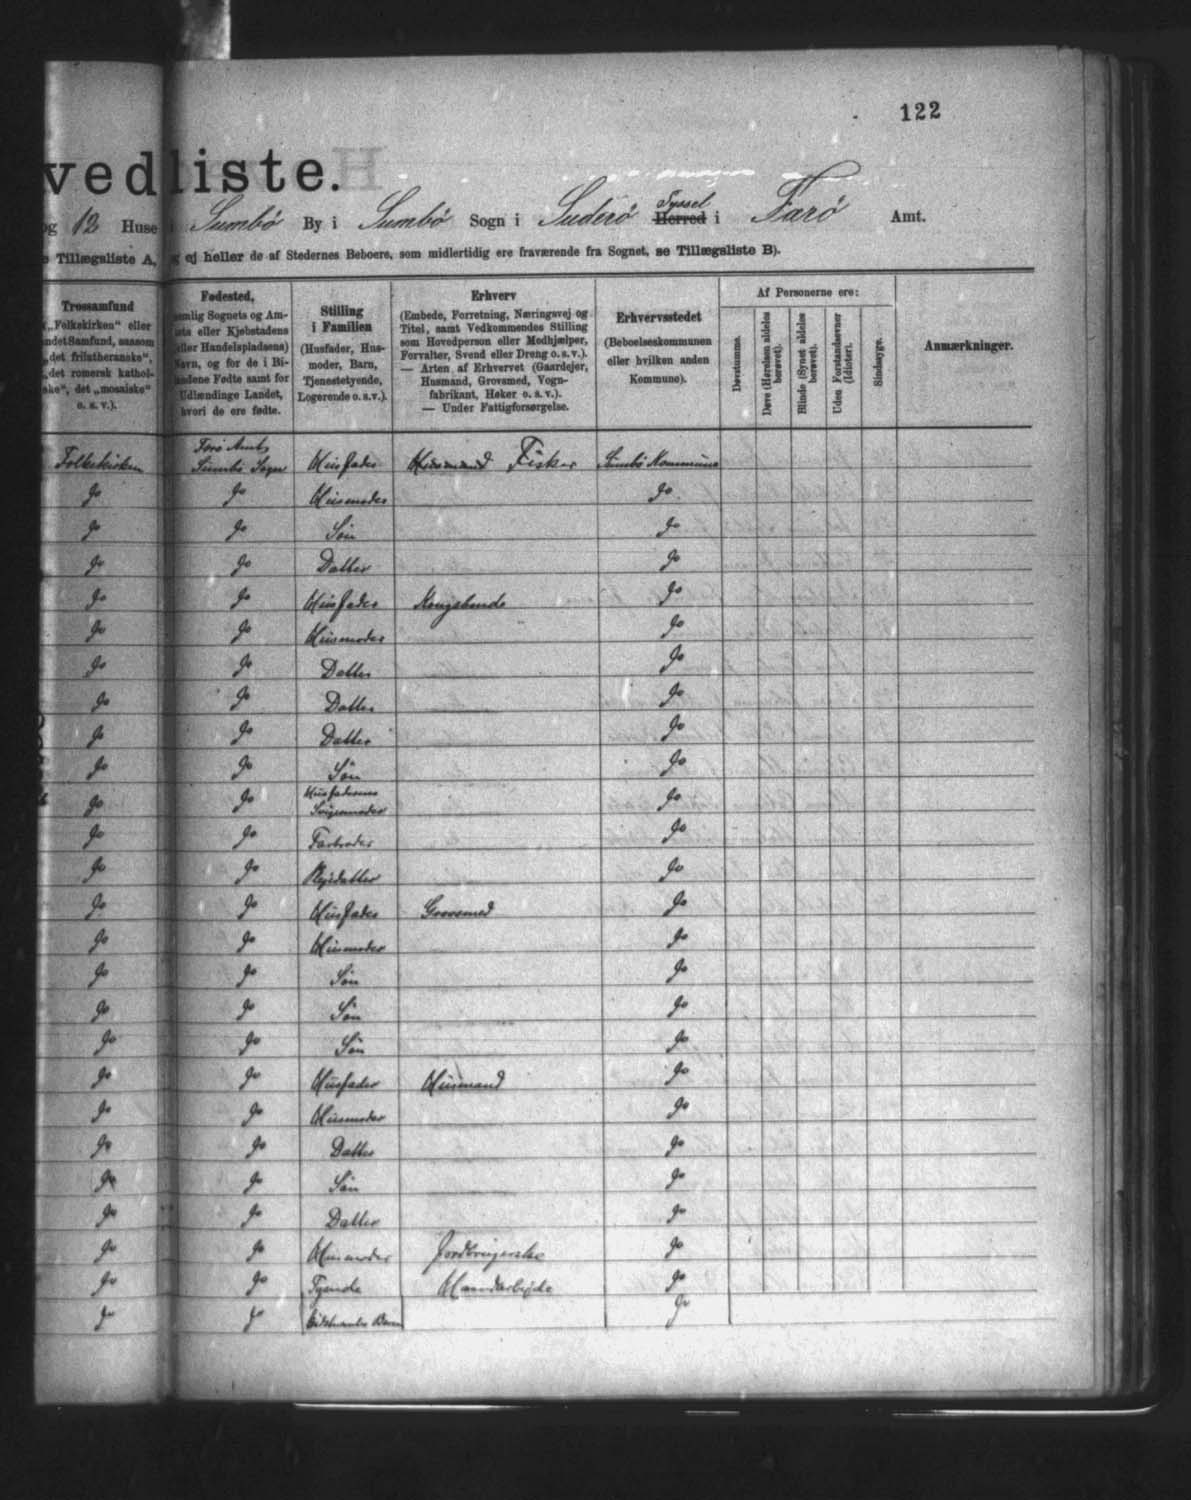 122
vedliste.
og 12 Huse i Sumbø By i Sumbø Sogn i Suderø Syssel Herred i Farø Amt.
Tillægsliste A, og ej heller de af Stedernes Beboere, som midlertidig ere fraværende fra Sognet, se Tillægsliste B).
Trossamfund
(„Folkekirken“ eller
andet Samfund, saasom
„det frilutheranske“,
„det romersk kathol-
ske“, det „mosaiske“
o. s. v.).
Fødested,
nemlig Sognets og Am-
tets eller Kjøbstadens
(eller Handelspladsens)
Navn, og for de i Bi-
landene Fødte samt for
Udlændinge Landet,
hvori de ere fødte.
Stilling
i Familien
(Husfader, Hus-
moder, Barn,
Tjenestetyende,
Logerende o. s. v.).
Erhverv
(Embede, Forretning, Næringsvej og
Titel, samt Vedkommendes Stilling
som Hovedperson eller Medhjælper,
Forvalter, Svend eller Dreng o. s. v.).
— Arten af Erhvervet (Gaardejer,
Husmand, Grovsmed, Vogn-
fabrikant, Høker o. s. v.).
— Under Fattigforsørgelse.
Erhvervsstedet
(Beboelseskommunen
eller hvilken anden
Kommune).
Af Personerne ere:
Døvstumme.
Døve (Hørelsen aldeles berøvet).
Blinde (Synet aldeles berøvet).
Uden Forstandsevner (Idioter).
Sindssyge.
Anmærkninger.
Folkekirken Farø Amts Sumbø Sogn Husfader Husmand Fisker Sumbø Kommune
do do Husmoder do
do do Søn do
do do Datter do
do do Husfader Kongsbonde do
do do Husmoder do
do do Datter do
do do Datter do
do do Datter do
do do Søn do
do do Husfaderens Svigermoder do
do do Farbroder do
do do Plejedatter do
do do Husfader Grovsmed do
do do Husmoder do
do do Søn do
do do Søn do
do do Søn do
do do Husfader Husmand do
do do Husmoder do
do do Datter do
do do Søn do
do do Datter do
do do Husmoder Jordbrugerske do
do do Tyende Haandarbejde do
do do Barn do